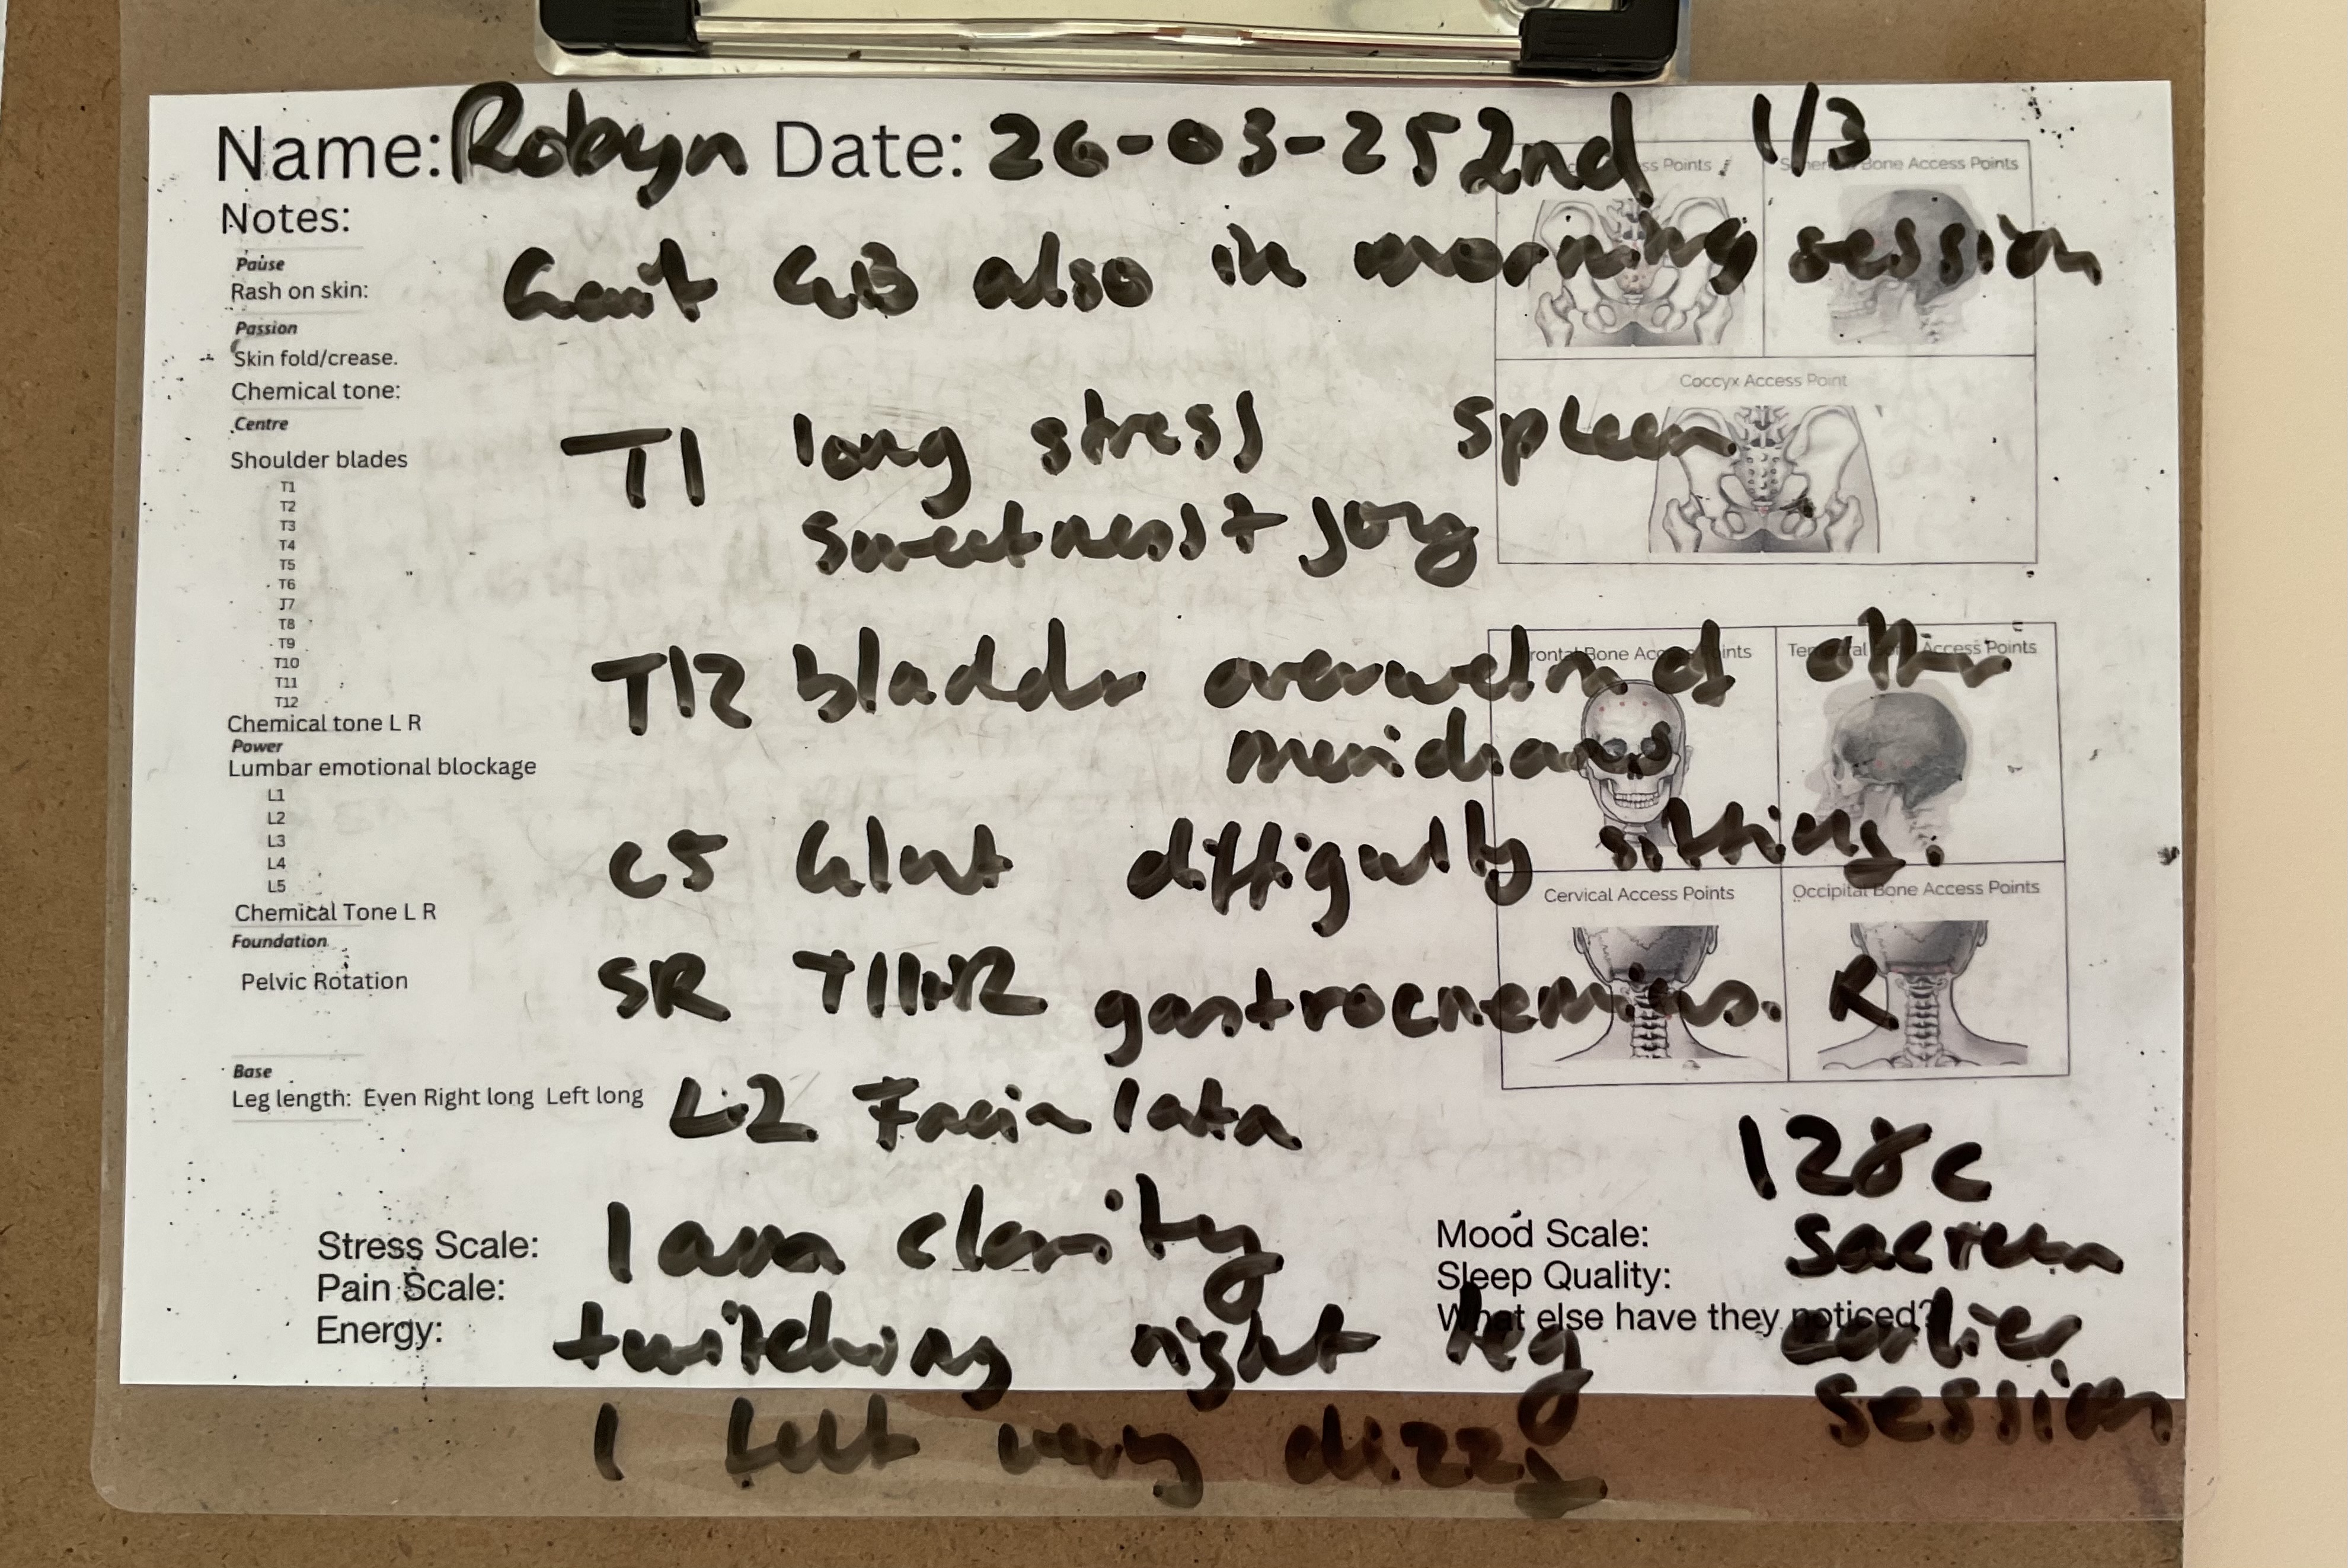 Name: Robyn Date: 26-03-25 2nd 1/3
Notes:
Gait GB also in morning session
Pause
Rash on skin:
Passion
Skin fold/crease.
Chemical tone:
Centre
Shoulder blades
T1 long stress spleen
sweetness + joy
T1
T2
T3
T4
T5
T6
T7
T8
T9
T10
T11
T12
T12 bladder overwelm of other
meridians
Chemical tone L R
Power
Lumbar emotional blockage
L1
L2
L3
L4
L5
C5 Glut diffigulty sitting.
Chemical Tone L R
Foundation
Pelvic Rotation
SR gastrocnemius. R
Base
Leg length: Even Right long Left long
L2 Facia lata
128c
sacrum
earlier
session
Stress Scale:
Pain Scale:
Energy:
I am clarity
twitching right leg
I felt very dizzy
Mood Scale:
Sleep Quality:
What else have they noticed?
ss Points
Bone Access Points
Coccyx Access Point
Frontal Bone Access Points
Temporal Bone Access Points
Cervical Access Points
Occipital Bone Access Points